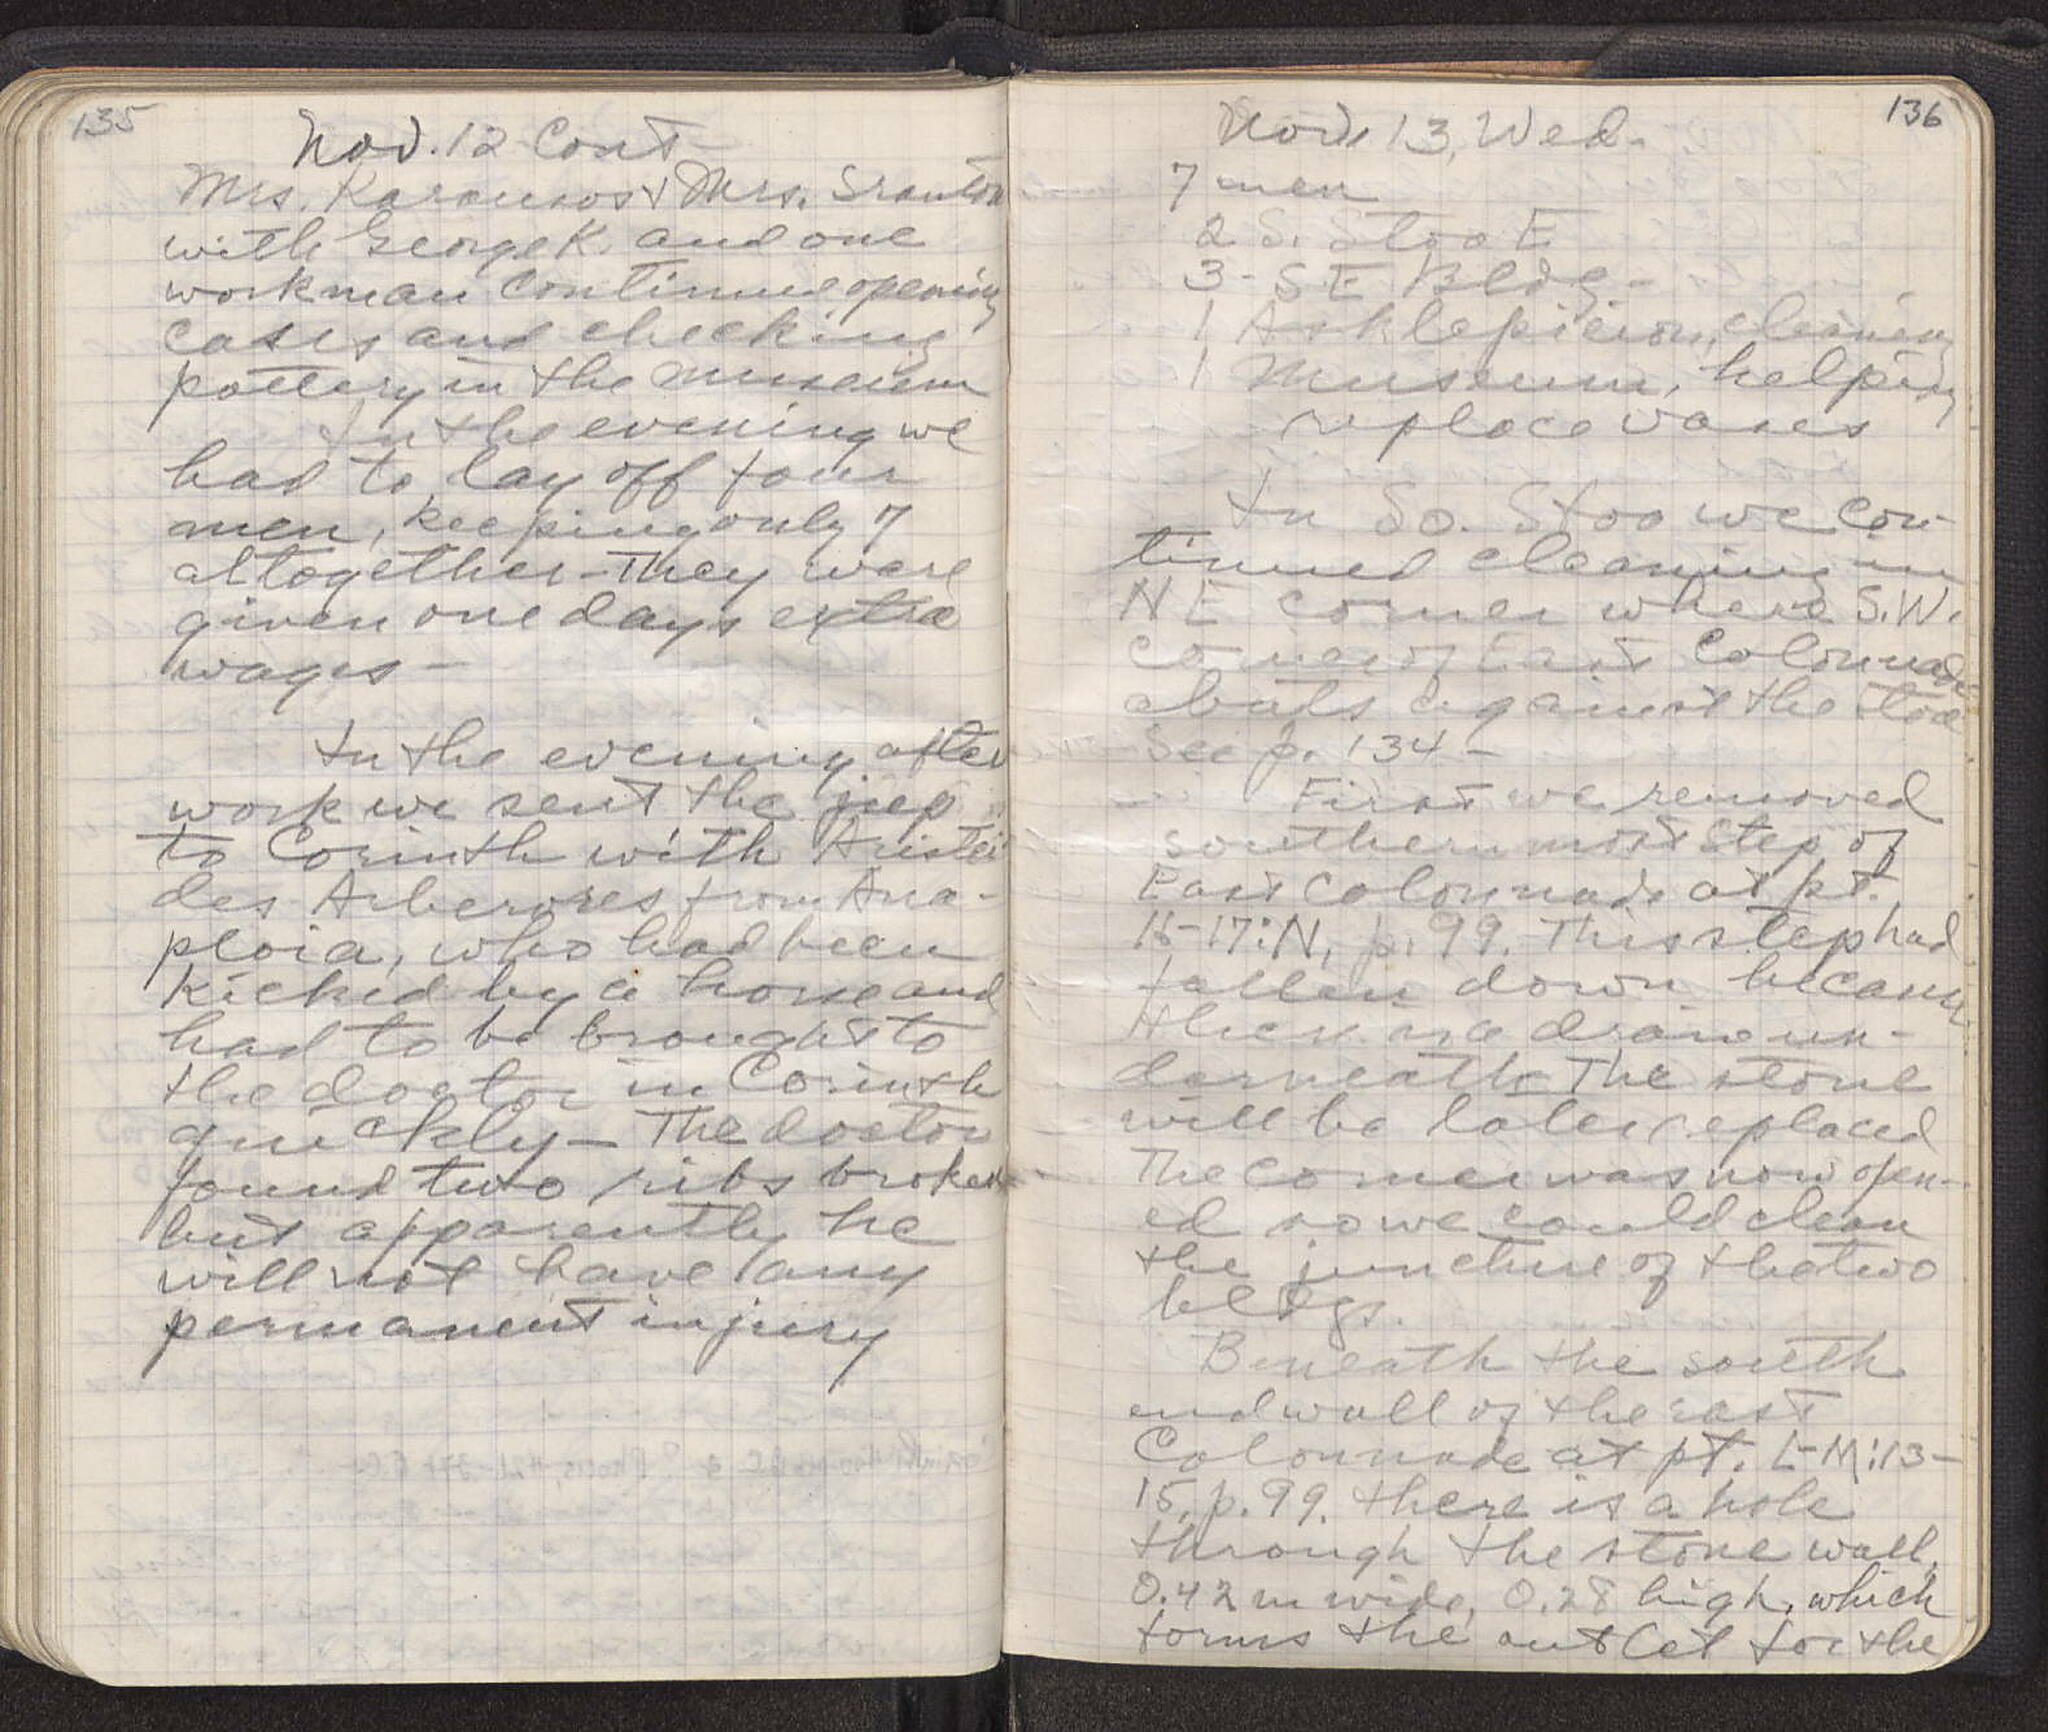 135
Nov. 12 Cont-
Mrs. & Mrs.
with George K. and one
workman continued opening
cases and checking
pottery in the museum
In the evening we
had to lay off four
men, keeping only 7
altogether - They were
given one days extra
wages -
In the evening after
work we sent the jeep
to Corinth with Aristei
des from Ana-
ploia, who had been
kicked by a horse and
had to be brought to
the doctor in Corinth
quickly - The doctor
found two ribs broken
but apparently he
will not have any
permanent injury
136
Nov. 13, Wed.
7 men
2 S. Stoa E
3 - SE Bldg -
1 Asklepieion, cleaning
1 Museum, helping
replace vases
In So. Stoa we con-
tinued cleaning in
NE corner where S.W.
corner of East Colonnade
abuts against the stoa
See p. 134 -
First we removed
southernmost step of
East Colonnade at pt.
16-17:N, p. 99. This step had
fallen down because
there is a drain un-
derneath - The stone
will be later replaced
The corner was now open-
ed so we could clean
the juncture of the two
bldgs.
Beneath the south
end wall of the east
Colonnade at pt. L-M:13-
15, p. 99. there is a hole
through the stone wall,
0.42 m wide, 0.28 high, which
forms the outlet for the